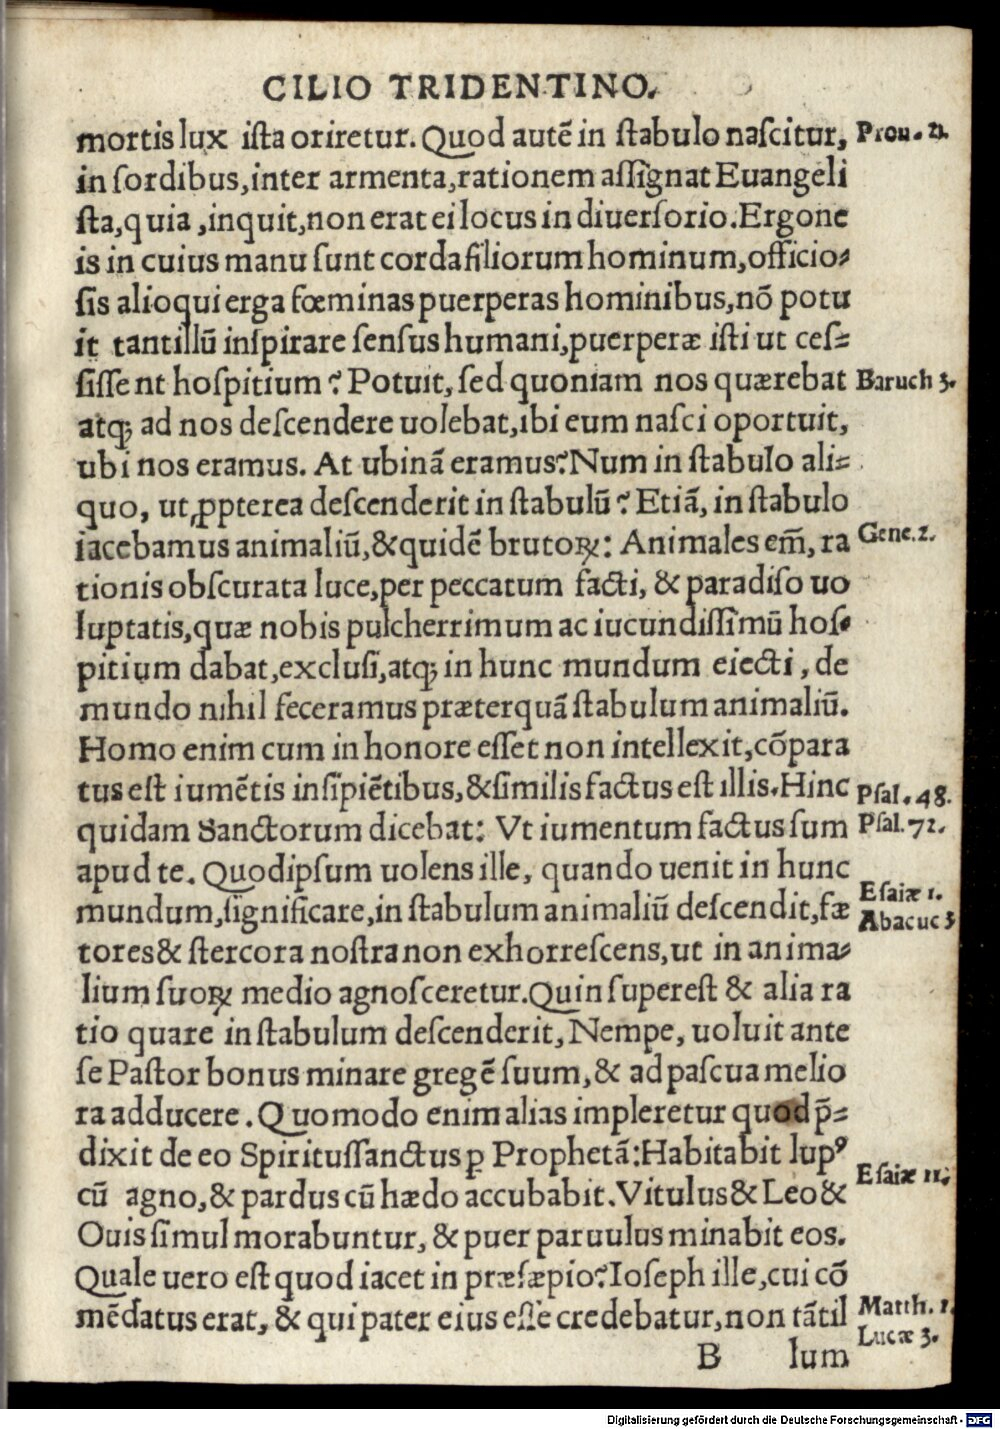 CILIO TRIDENTINO.
mortis lux ista oriretur. Quod autē in stabulo nascitur, Prou. 21.
in sordibus, inter armenta, rationem assignat Euangeli
sta, quia, inquit, non erat ei locus in diuersorio. Ergone
is in cuius manu sunt corda filiorum hominum, officio-
sis alioqui erga fœminas puerperas hominibus, nō potu
it tantillū inspirare sensus humani, puerperæ isti ut ces-
sissent hospitium? Potuit, sed quoniam nos quærebat Baruch 3.
atq; ad nos descendere uolebat, ibi eum nasci oportuit,
ubi nos eramus. At ubinā eramus? Num in stabulo ali-
quo, ut ꝓpterea descenderit in stabulū? Etiā, in stabulo
iacebamus animaliū, & quidē brutoꝝ: Animales em̄, ra Gene. 2.
tionis obscurata luce, per peccatum facti, & paradiso uo
luptatis, quæ nobis pulcherrimum ac iucundissimū hos-
pitium dabat, exclusi, atq; in hunc mundum eiecti, de
mundo nihil feceramus præterquā stabulum animaliū.
Homo enim cum in honore esset non intellexit, cōpara
tus est iumētis insipiētibus, & similis factus est illis. Hinc Psal. 48.
quidam Sanctorum dicebat: Vt iumentum factus sum Psal. 72.
apud te. Quod ipsum uolens ille, quando uenit in hunc
mundum, significare, in stabulum animaliū descendit, fæ Esaiæ 1. Abacuc 3
tores & stercora nostra non exhorrescens, ut in anima-
lium suoꝝ medio agnosceretur. Quin superest & alia ra
tio quare in stabulum descenderit, Nempe, uoluit ante
se Pastor bonus minare gregē suum, & ad pascua melio
ra adducere. Quomodo enim alias impleretur quod p̄-
dixit de eo Spiritussanctus ꝑ Prophetā: Habitabit lupꝰ
cū agno, & pardus cū hædo accubabit. Vitulus & Leo & Esaiæ 11.
Ouis simul morabuntur, & puer paruulus minabit eos.
Quale uero est quod iacet in præsæpio? Ioseph ille, cui cō
mēdatus erat, & qui pater eius esse credebatur, non tātil Matth. 1.
Lucæ 3.
B lum
Digitalisierung gefördert durch die Deutsche Forschungsgemeinschaft - DFG